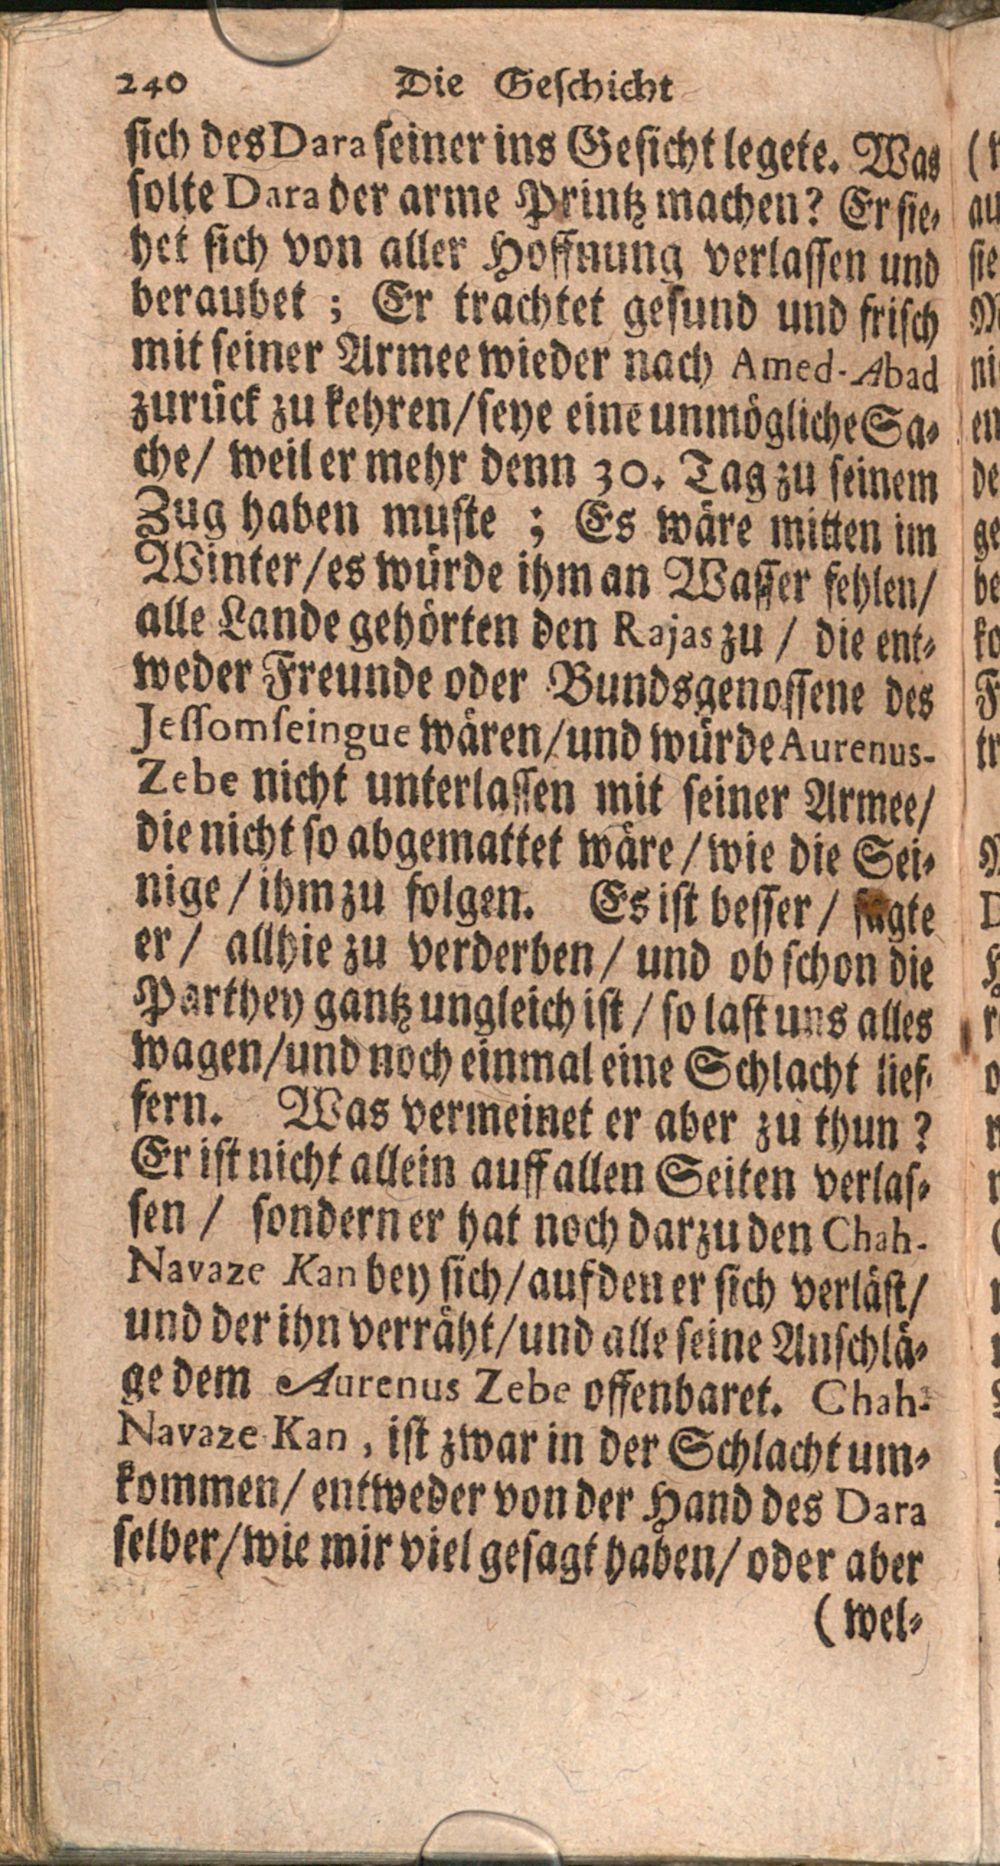 240 Die Geschicht
sich des Dara seiner ins Gesicht legete. Was
solte Dara der arme Printz machen? Er sie-
het sich von aller Hoffnung verlassen und
beraubet ; Er trachtet gesund und frisch
mit seiner Armee wieder nach Amed-Abad
zurück zu kehren/ seye eine unmögliche Sa-
che/ weil er mehr denn 30. Tag zu seinem
Zug haben muste ; Es wäre mitten im
Winter/ es würde ihm an Wasser fehlen/
alle Lande gehörten den Rajas zu / die ent-
weder Freunde oder Bundsgenossene des
Jessomseingue wären/ und würde Aurenus-
Zebe nicht unterlassen mit seiner Armee/
die nicht so abgemattet wäre / wie die Sei-
nige / ihm zu folgen. Es ist besser / sagte
er / allhie zu verderben / und ob schon die
Parthey gantz ungleich ist / so last uns alles
wagen/ und noch einmal eine Schlacht lief-
fern. Was vermeinet er aber zu thun ?
Er ist nicht allein auff allen Seiten verlas-
sen / sondern er hat noch darzu den Chah-
Navaze Kan bey sich/ auf den er sich verläst/
und der ihn verräht/ und alle seine Anschlä-
ge dem Aurenus Zebe offenbaret. Chah-
Navaze Kan , ist zwar in der Schlacht um-
kommen/ entweder von der Hand des Dara
selber/ wie mir viel gesagt haben/ oder aber
(wel-